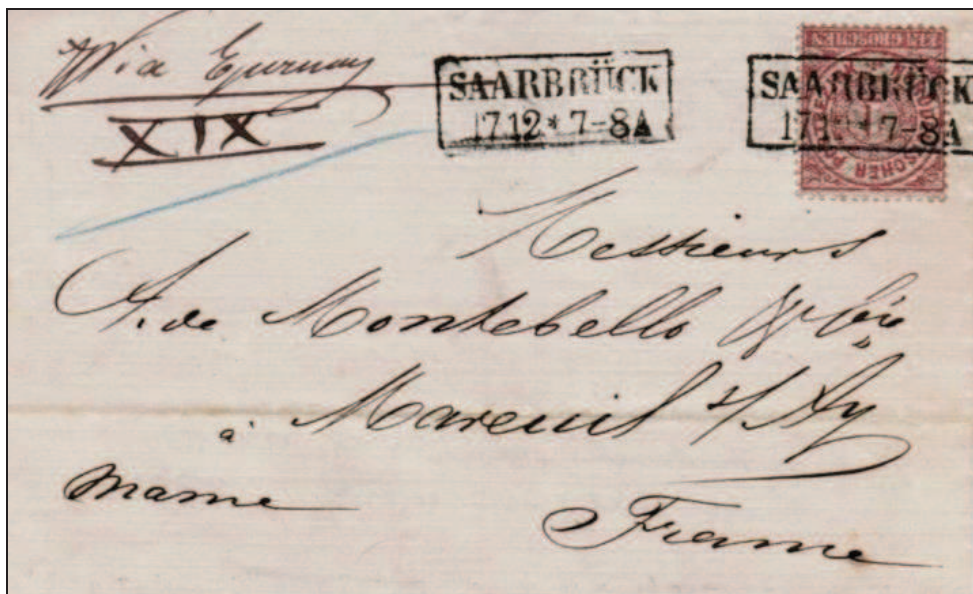 Via Epernay
XIX
SAARBRÜCK
17 12 * 7-8 A
SAARBRÜCK
17 12 * 7-8 A
EIN GROSCHEN
Messieurs
A. de Montebello & Cie
à Mareuil s/Ay
Marne
France